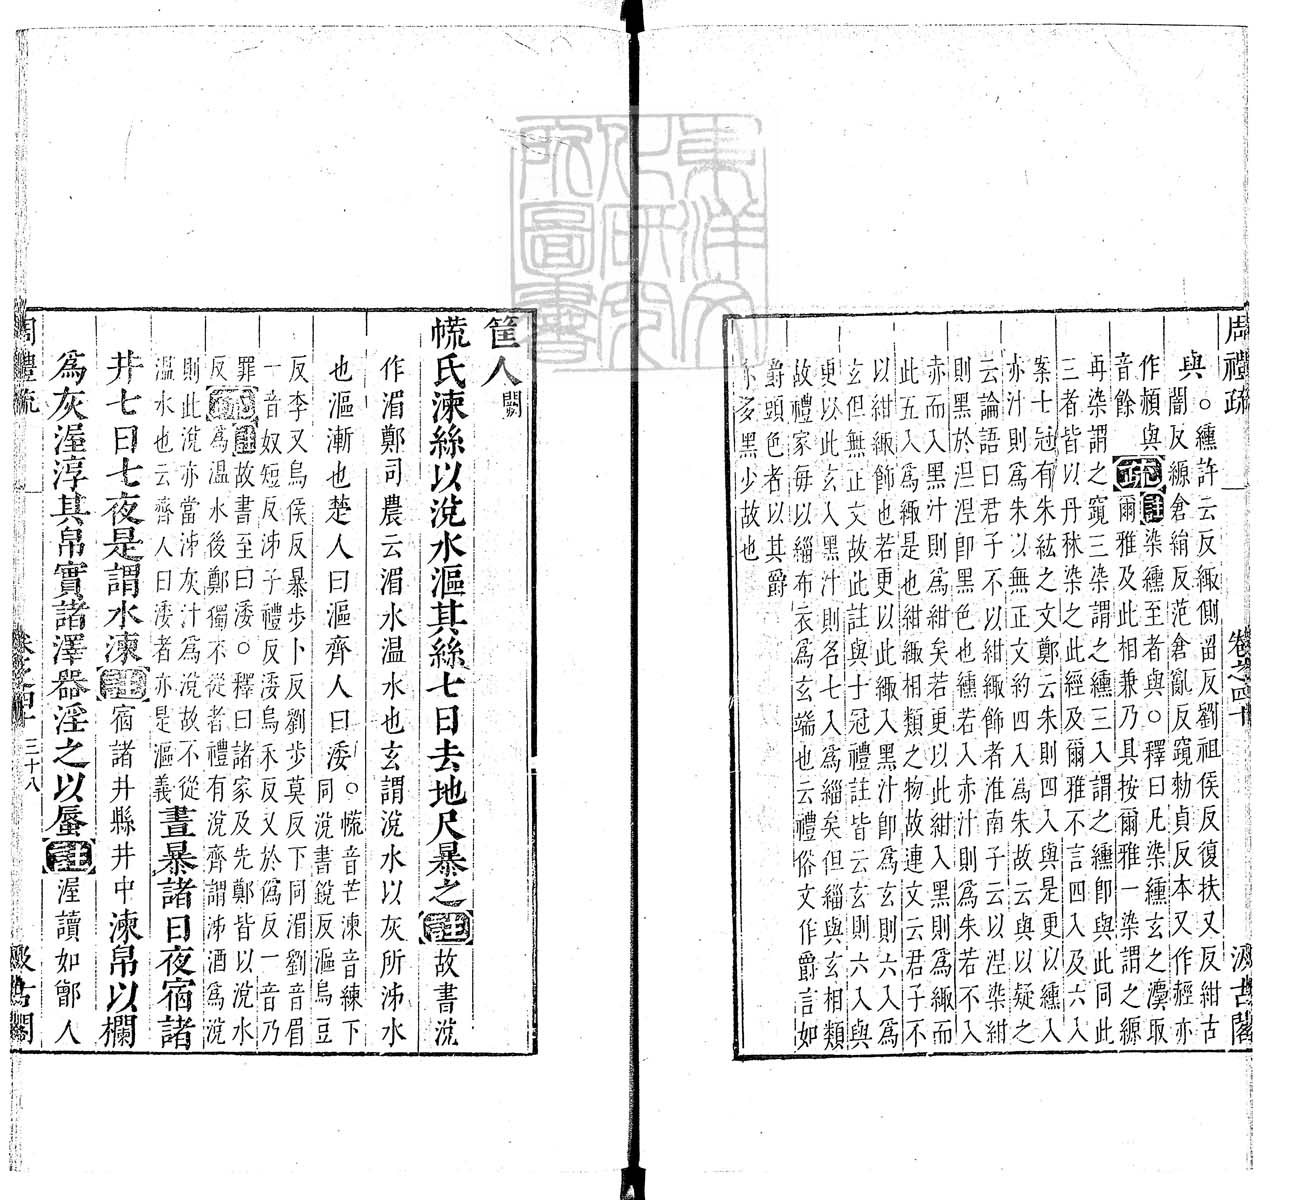 周禮疏 卷之四十 汲古閣
與○纁許云反緅側留反劉祖侯反復扶又反紺古
闇反縓倉絹反范倉亂反窺勑貞反本又作䞓亦
作頳與
音餘
疏註染纁至者與○釋曰凡染纁玄之灋取
爾雅及此相兼乃具按爾雅一染謂之縓
再染謂之窺三染謂之纁三入謂之纁卽與此同此
三者皆以丹秫染之此經及爾雅不言四入及六入
案士冠有朱紘之文鄭云朱則四入與是更以纁入
赤汁則爲朱以無正文約四入爲朱故云與以疑之
云論語曰君子不以紺緅飾者淮南子云以涅染紺
則黑於涅涅卽黑色也纁若入赤汁則爲朱若不入
赤而入黑汁則爲紺矣若更以此紺入黑則爲緅而
此五入爲緅是也紺緅相類之物故連文云君子不
以紺緅飾也若更以此緅入黑汁卽爲玄則六入爲
玄但無正文故此註與士冠禮註皆云玄則六入與
更以此玄入黑汁則名七入爲緇矣但緇與玄相類
故禮家每以緇布衣爲玄端也云禮俗文作爵言如
爵頭色者以其爵
亦多黑少故也
筐人闕
㡛氏湅絲以涚水漚其絲七日去地尺暴之註故書涚
作湄鄭司農云湄水温水也玄謂涚水以灰所泲水
也漚漸也楚人曰漚齊人曰涹○㡛音芒湅音練下
同涚書銳反漚烏豆
反李又烏侯反暴步卜反劉步莫反下同湄劉音眉
一音奴短反泲子禮反涹烏禾反又於僞反一音乃
罪
反
疏註故書至曰涹○釋曰諸家及先鄭皆以涚水
爲温水後鄭獨不從者禮有涚齊謂泲酒爲涚
則此涚亦當泲灰汁爲涚故不從
温水也云齊人曰涹者亦是漚義
晝暴諸日夜宿諸
井七日七夜是謂水湅註宿諸井縣井中湅帛以欄
爲灰渥淳其帛實諸澤器淫之以蜃註渥讀如鄫人
周禮疏 卷之四十 三十八 汲古閣
東洋文化研究所圖書